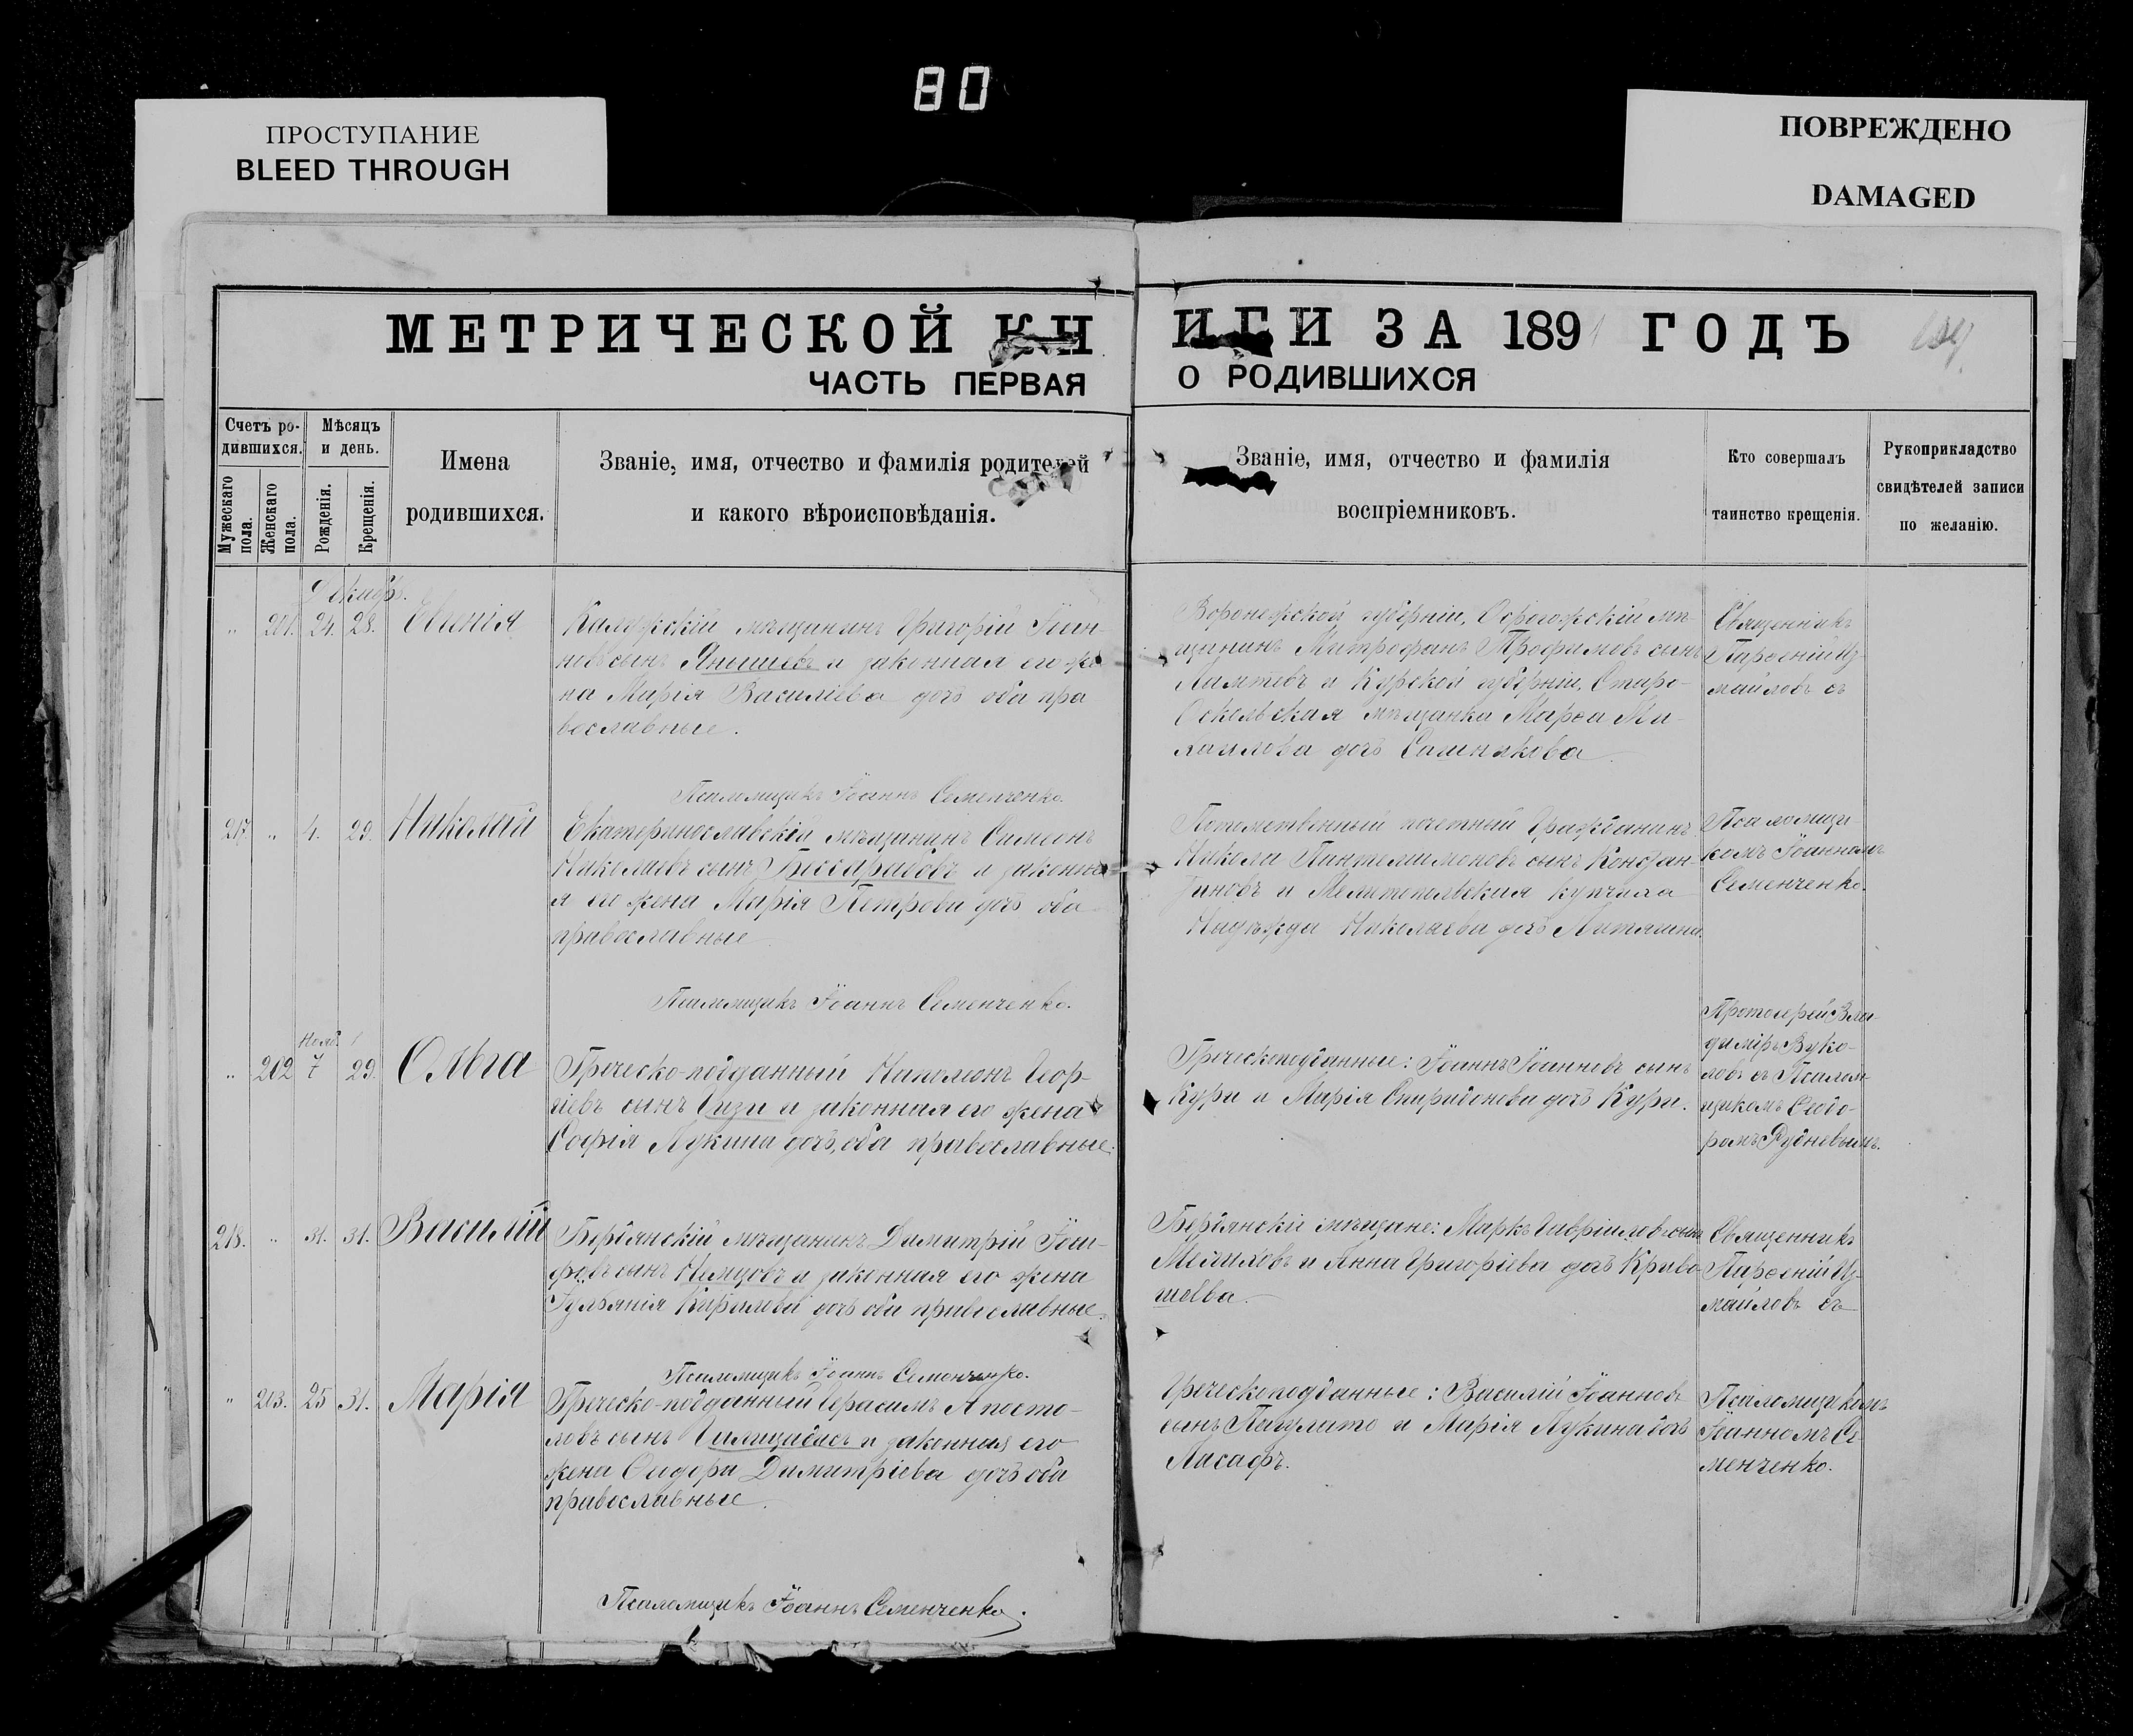 80
ПРОСТУПАНИЕ
BLEED THROUGH
ПОВРЕЖДЕНО
DAMAGED
МЕТРИЧЕСКОЙ КНИГИ ЗА 1891 ГОДЪ
ЧАСТЬ ПЕРВАЯ О РОДИВШИХСЯ
Счетъ ро-
дившихся.
Мужескаго
пола.
Женскаго
пола.
Мѣсяцъ
и день.
Рожденія.
Крещенія.
Имена
родившихся.
Званіе, имя, отчество и фамилія родителей
и какого вѣроисповѣданія.
Званіе, имя, отчество и фамилія
воспріемниковъ.
Кто совершалъ
таинство крещенія.
Рукоприкладство
свидѣтелей записи
по желанію.
" 24. 28. Евгенія
Калужскій мѣщанинъ Григорій Іоан-
новъ сынъ и законная его же
на Марія Василіева дочь оба пра
вославные.
Воронежской губерніи, Острогожскій мѣ-
щанинъ Митрофанъ Трофимовъ сынъ
Лаптевъ и Курской губерніи, Старо-
Оскольская мѣщанка Марѳа Ми-
хаилова дочь
Священникъ
Парѳеній Из-
маиловъ съ
Псаломщикъ Іоаннъ Семенченко.
217 " 4. 29. Николай
Екатеринославскій мѣщанинъ Симеонъ
Николаевъ сынъ Бессарабовъ и законна
я его жена Марія Петрова дочь оба
православные
Потомственный почетный Гражданинъ
Никола Пантелимоновъ сынъ Констан-
тиновъ и Мелитопольская купчиха
Надежда Николаева дочь
Псаломщи-
комъ Іоанномъ
Семенченко.
Псаломщикъ Іоаннъ Семенченко.
Нояб.
" 202 7 29. Ольга
Греческо-подданный Наполеонъ Геор-
гіевъ сынъ и законная его жена
Софія Лукина дочь, оба православные.
Греческоподданные: Іоаннъ Іоанновъ сынъ
Кури и Марія Спиридонова дочь Кури.
Протоіерей Вла-
диміръ Вуко-
ловъ съ Псалом-
щикомъ Ѳеодо-
ромъ Рудневымъ.
218. " 31. 31. Василій
Бердянскій мѣщанинъ Димитрій Іоси-
фовъ сынъ Немцовъ и законная его жена
Іуліанія Кирилова дочь оба православные.
Бердянскіе мѣщане: Маркъ Гавріиловъ сынъ
и Анна Григоріева дочь Криво-
шеева.
Священникъ
Парѳеній Из-
маиловъ съ
Псаломщикъ Іоаннъ Семенченко.
" 203. 25 31. Марія
Греческо-подданный Герасимъ Апосто-
ловъ сынъ и законная его
жена Димитріева дочь оба
православные.
Греческоподданные: Василій Іоанновъ
сынъ и Марія Лукина дочь
Псаломщикомъ
Іоанномъ Се
менченко.
Псаломщикъ Іоаннъ Семенченко.